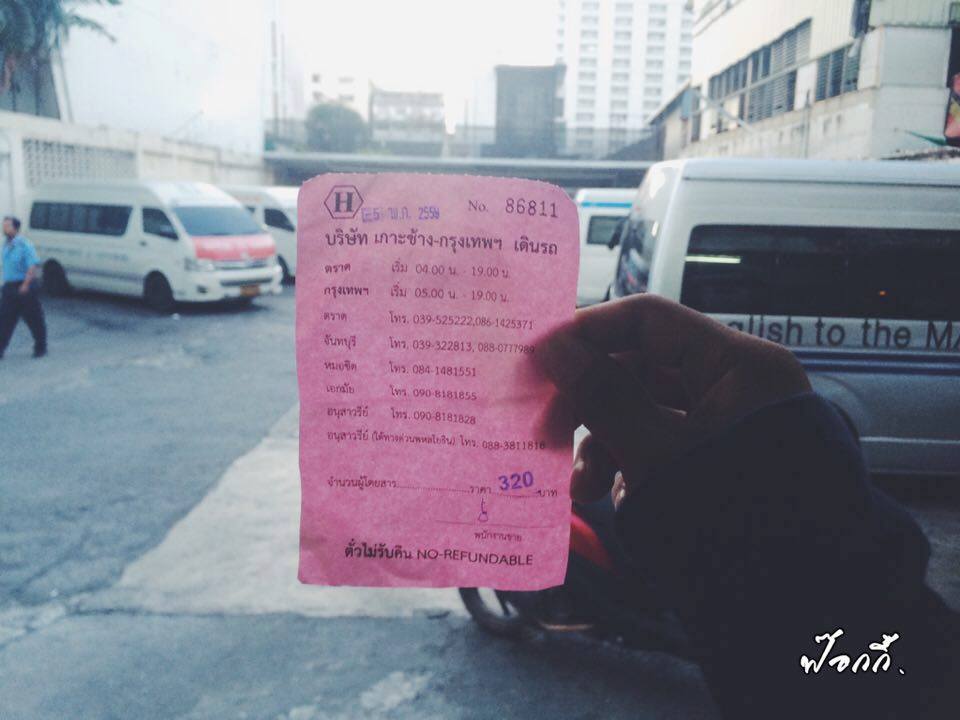 H
พ.ค. 2559 No. 86811
บริษัท เกาะช้าง-กรุงเทพฯ เดินรถ
ตราด เริ่ม 04.00 น. - 19.00 น.
กรุงเทพฯ เริ่ม 05.00 น. - 19.00 น.
ตราด โทร. 039-525222,086-1425371
จันทบุรี โทร. 039-322813, 088-0777989
หมอชิต โทร. 084-1481551
เอกมัย โทร. 090-8181855
อนุสาวรีย์ โทร. 090-8181828
อนุสาวรีย์ (ใต้ทางด่วนพหลโยธิน) โทร. 088-3811818
จำนวนผู้โดยสาร....................ราคา 320 บาท
พนักงานขาย
ตั๋วไม่รับคืน NO-REFUNDABLE
glish to the MA
ฟ๊อกกี้.